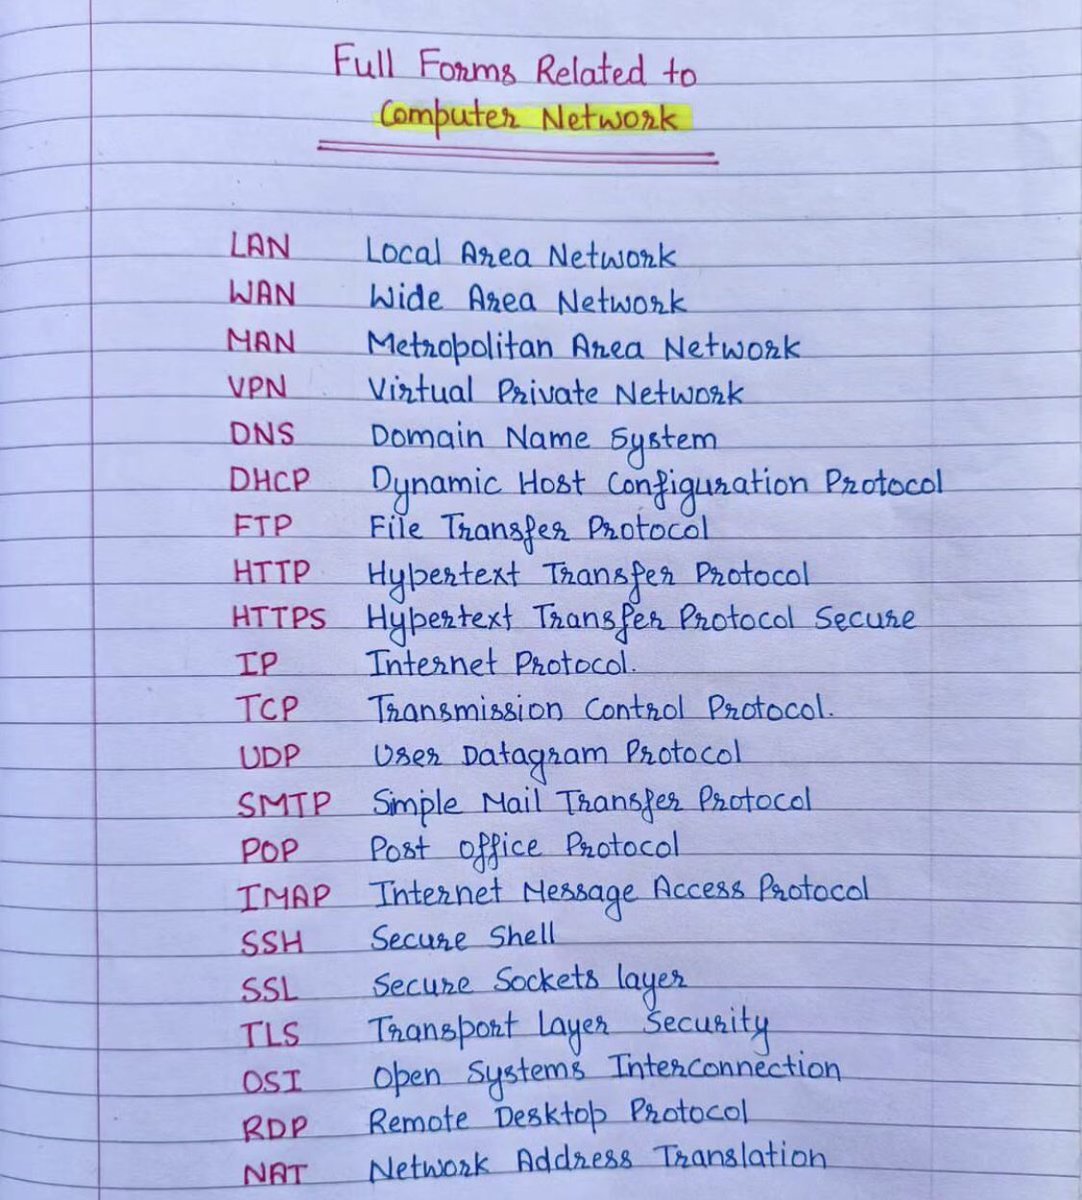 Full Forms Related to
Computer Network
LAN Local Area Network
WAN Wide Area Network
MAN Metropolitan Area Network
VPN Virtual Private Network
DNS Domain Name System
DHCP Dynamic Host Configuration Protocol
FTP File Transfer Protocol
HTTP Hypertext Transfer Protocol
HTTPS Hypertext Transfer Protocol Secure
IP Internet Protocol.
TCP Transmission Control Protocol.
UDP User Datagram Protocol
SMTP Simple Mail Transfer Protocol
POP Post office Protocol
IMAP Internet Message Access Protocol
SSH Secure Shell
SSL Secure Sockets layer
TLS Transport Layer Security
OSI Open Systems Interconnection
RDP Remote Desktop Protocol
NAT Network Address Translation